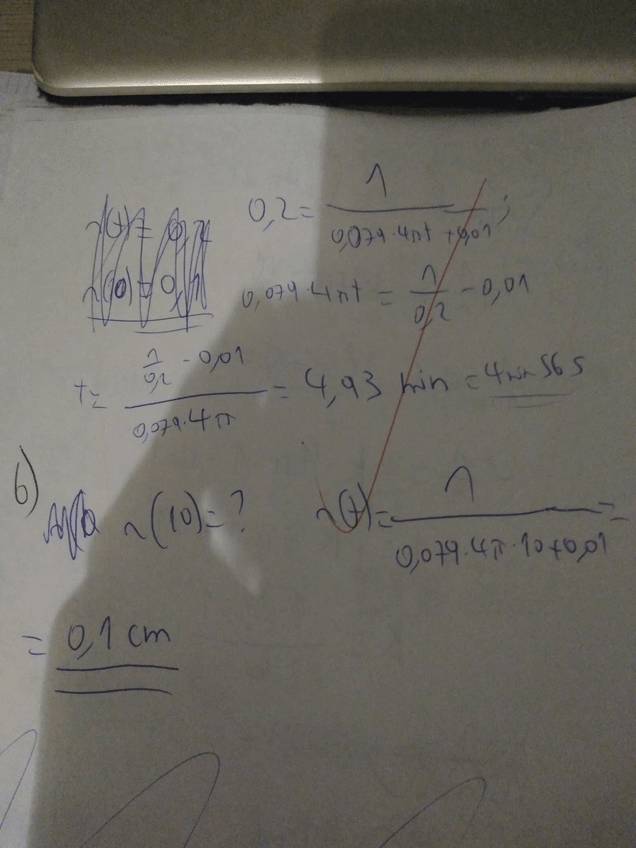 0,2 = 1 / (0,079·4πt + 0,01) ;
0,079·4πt = 1/0,2 - 0,01
t = (1/0,2 - 0,01) / (0,079·4π) = 4,93 min = 4 min 56 s
b)
r(10) = ? r(t) = 1 / (0,079·4π·10+0,01) =
= 0,1 cm